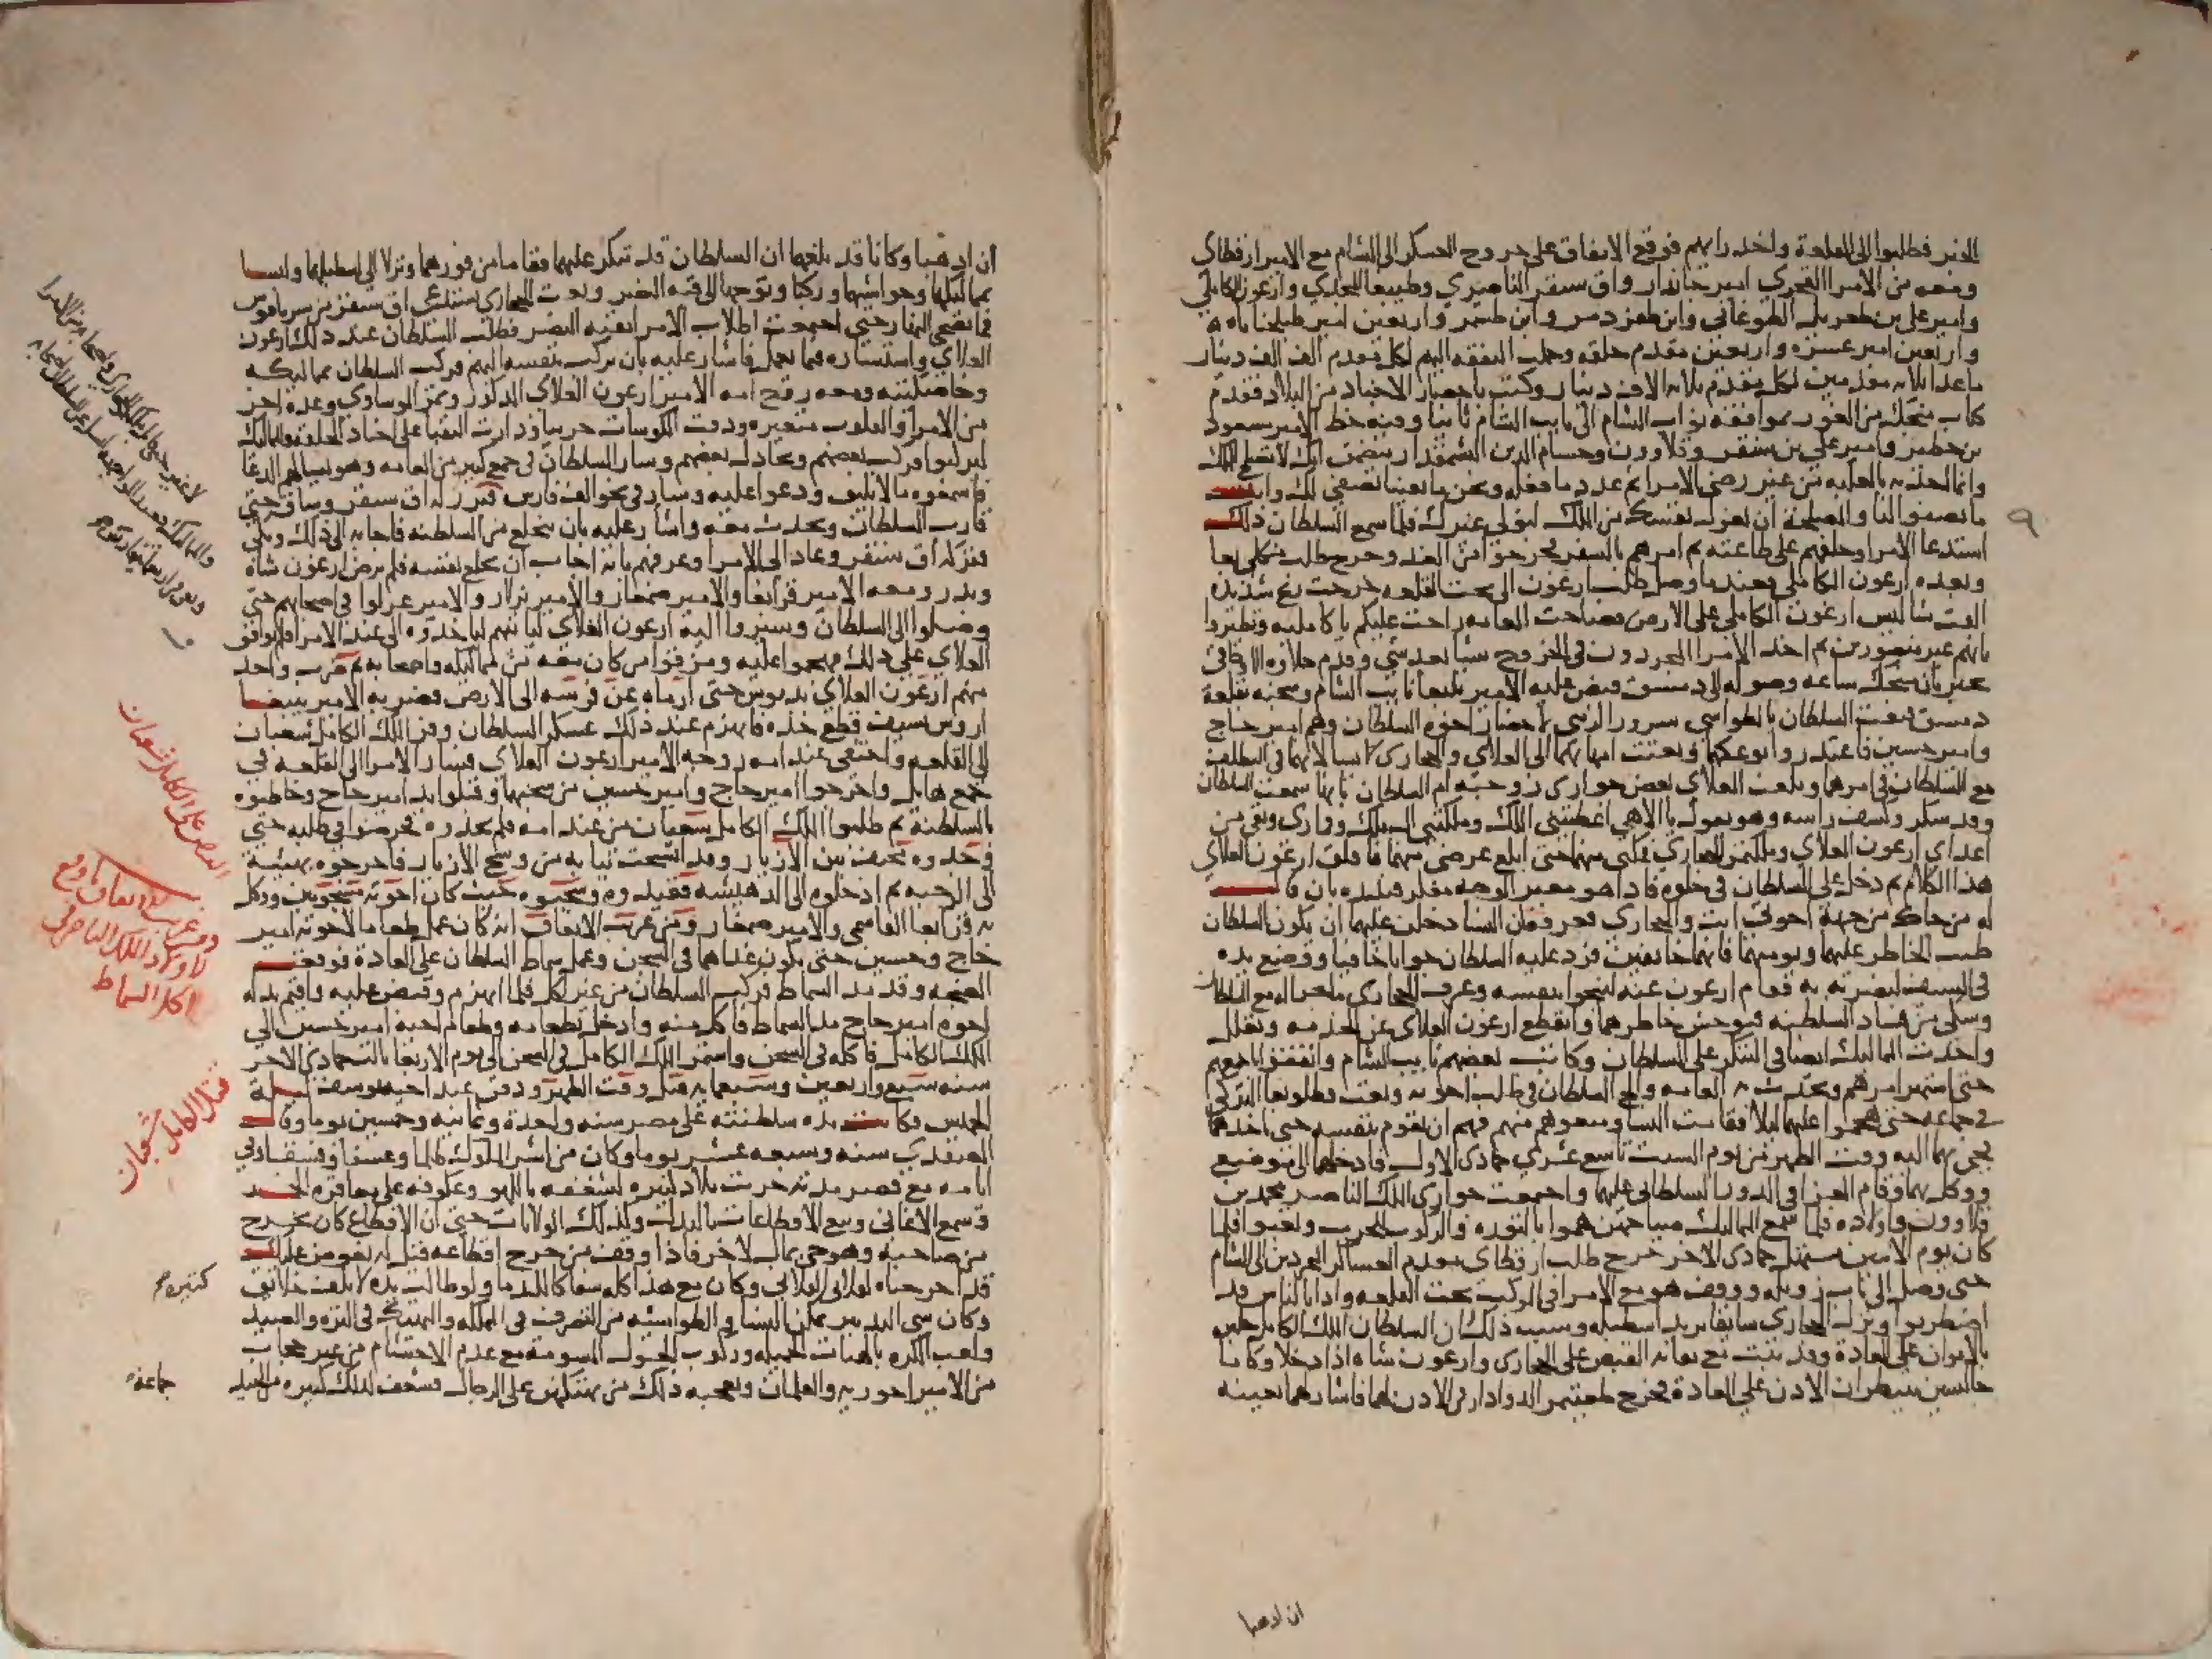 الخبر فطلبوا الى القلعة واخذ رايهم فوقع الاتفاق على خروج العسكر الى الشام مع الامير ارقطاى
ومعه من الامرا امير جاندار واق سنقر الناصري وطيبغا المجدي وارغون الكاملي
وامير على بن طغريل الطوغاني وابن طقزدمر وابن طشتمر واربعين امير طبلخاناه
واربعين امير عشرة واربعين مقدم حلقه وحملت النفقه اليهم لكل مقدم الف دينار
ما عدا ثلاثه مقدمين لكل مقدم ثلاثه الاف دينار وكتب باحضار الاجناد من البلاد فقدم
كتاب منجك من الغور بموافقه نواب الشام الى نايب الشام ثانيا وفيه خط الامير مسعود
بن خطير وامير على بن قراسنقر وقلاوون وحسام الدين يتضمن انك لا تصلح للملك
وانما اخذته بالغلبه من غير رضى الامرا ثم عدد ما فعله ونحن ما بقينا نصفى لك وانت
ما تصفوا لنا والمصلحة ان تعزل نفسك من الملك ليتولى غيرك فلما سمع السلطان ذلك
استدعا الامرا وحلفهم على طاعته ثم امرهم بالسفر فخرجوا من الغد وخرج طلب منكلى بغا
وبعده ارغون الكاملي فعندما وصل طلب ارغون الى تحت القلعه خرجت ريح شديده
القت شاليش ارغون الكاملي على الارض فصاحت العامه راحت عليكم يا كامليه وتطيروا
بانهم غير منصورين ثم اخذ الامرا المجردون في الخروج شيا بعد شي وقدم حلاوه الاوجاقى
يخبر بان منجك ساعه وصوله الى دمشق قبض عليه الامير يلبغا نايب الشام وسجنه بقلعة
دمشق فبعث السلطان بالطواشي سرور الزينى لاحضار اخوى السلطان وهم امير حاج
وامير حسين فاعتذروا بوعكهما وبعثت امهاتهما الى العلاى والحجازى
مع السلطان في امرهما وبلغت العلاى بعض جوارى زوجته ام السلطان بانها سمعت السلطان
وقد سكر وكشف راسه وهو يقول يا الاهي اعطيتنى الملك وملكتني ال ملك وفوارى وبقى من
اعداى ارغون العلاى وملكتمر الحجازى فمكنى منهما حتى ابلغ غرضى منهما فاقلق ارغون العلاى
هذا الكلام ثم دخل على السلطان في خلوه فاذا هو متغير الوجه مفكر فبدده بان قال
له من جاك من جهة اخوتى انت والحجازى فعرفه ان النسا دخلن عليهما ان يكون السلطان
طيب الخاطر عليهما ويومنهما فانهما خايفين فرد عليه السلطان جوابا جافيا ووضع يده
في السيف ليضربه به فقام ارغون عنه لينجوا بنفسه وعرف الحجازى ماجرا له مع السلطان
وشكى من فساد السلطنه فتوحش خاطرهما وانقطع ارغون العلاى عن الخدمه وتعلل
واخذت المماليك ايضا في التنكر على السلطان وكاتب بعضهم نايب الشام واتفقوا باجمعهم
حتى اشتهر امرهم وتحدثت به العامه والح السلطان في طلب اخوته وبعث قطلوبغا الكركى
في جماعه حتى هجموا عليهما ليلا فقامت النسا ومنعوهم منهم فهم ان يقوم بنفسه حتى ياخذهما
فجى بهما اليه وقت الظهر من يوم السبت تاسع عشرى جمادى الاول فادخلهما الى موضع
ووكل بهما وقام العزا في الدور السلطانى عليهما واجتمعت جوارى الملك الناصر محمد بن
قلاوون واولاده فلما سمع المماليك صياحهن هموا بالثوره والركوب للحرب وتعبوا فلما
كان يوم الاثنين مستهل جمادى الاخر خرج طلب ارقطاى مقدم العساكر المجردين الى الشام
حتى وصل الى باب زويله ووقف هو مع الامرا في الموكب تحت القلعه واذا بالناس قد
اضطربوا ونزل الحجازى سايقا يريد اسطبله وسبب ذلك ان السلطان الملك الكامل جلس
بالايوان على العادة وقد بيت مع ثقاته القبض على الحجازى وارغون شاه اذا دخلا وكانا
جالسين ينتظران الاذن على العادة فخرج طغيتمر الدوادار في الاذن لهما فاشار لهما بعينه
ان اذهبا
٩
ان اذهبا وكانا قد بلغهما ان السلطان قد تنكر عليهما فقاما من فورهما ونزلا الى اسطبليهما ولبسا
بمماليكهما وحواشيهما وركبا وتوجها الى قبه النصر وبعث الحجازى يستدعى اق سنقر من سرياقوس
فما تضحى النهار حتى اجتمعت اطلاب الامرا بقبه النصر فطلب السلطان عند ذلك ارغون
العلاى واستشاره فيما يعمل فاشار عليه بان يركب بنفسه اليهم فركب السلطان بمماليكه
وخاصكيته ومعه زوج امه الامير ارغون العلاى المذكور وتمر الموساوى وعدة اخر
من الامرا والقلوب متغيره ودقت الكوسات حربيا ودارت النقبا على اجناد الحلقه والمماليك
ليركبوا فركب بعضهم وتخاذل بعضهم وسار السلطان في جمع كبير من العامه وهو يسالهم الدعا
فاسمعوه ما لا يليق ودعوا عليه وسار في نحو الف فارس فبرز له اق سنقر وساق حتى
قارب السلطان وتحدث معه واشار عليه بان ينخلع من السلطنه فاجابه الى ذلك وبكى
فتركه اق سنقر وعاد الى الامرا وعرفهم بانه اجاب ان يخلع نفسه فلم يرض ارغون شاه
وبدر ومعه الامير قرابغا والامير صمغار والامير بزلار والامير غرلوا في اصحابهم حتى
وصلوا الى السلطان وسيروا اليه ارغون العلاى لياتيهم لياخذوه الى عند الامرا فلم يوافق
العلاى على ذلك فهجموا عليه ومزقوا من كان معه من مماليكه واصحابه ثم ضرب واحد
منهم ارغون العلاى بدبوس حتى ارماه عن فرسه الى الارض فضربه الامير بيبغا
اروس بسيف قطع خده فانهزم عند ذلك عسكر السلطان وفر الملك الكامل شعبان
الى القلعه واختفى عند امه زوجه الامير ارغون العلاى فسار الامرا الى القلعه في
جمع هايل واخرجوا امير حاج وامير حسين من سجنهما وقبلوا يد امير حاج وخاطبوه
بالسلطنه ثم طلبوا الملك الكامل شعبان من عند امه فلم يجدوه فحرضوا في طلبه حتى
وجدوه مختف بين الازيار وقد اتسخت ثيابه من وسخ الازيار فاخرجوه بهيئته
الى الرحبه ثم ادخلوه الى الدهيشه فقيدوه وسجنوه حيث كان اخوته مسجونين ووكل
به قرابغا القاسمى والامير صمغار ومن غريب الاتفاق انه كان عمل طعاما لاخوته امير
حاج وحسين حتى يكون غداهما في السجن وعمل سماط السلطان على العادة فوقعت
الضجه وقد مد السماط فركب السلطان من غير اكل فلما انهزم وقبض عليه واقيم بدله
اخوه امير حاج مد السماط فاكل منه وادخل بطعامه وطعام اخيه امير حسين الى
الملك الكامل فاكله في السجن واستمر الملك الكامل في السجن الى يوم الاربعا ثالث جمادى الاخر
سنه سبع واربعين وسبعمايه قتل وقت الظهر ودفن عند اخيه يوسف ليلة
الخميس فكانت مدة سلطنته على مصر سنه واحدة وثمانيه وخمسين يوما وقال
الصفدى سنه وسبعه عشر يوما وكان من اشر الملوك ظلما وعسفا وفسقا وفي
ايامه مع قصر مدته خربت بلاد كثيره لشغفه باللهو وعكوفه على معاقره الخمر
وسمع الاغانى وبيع الاقطاعات بالبذل وكذلك الولايات حتى ان الاقطاع كان يخرج
من صاحبه وهو حى بمال لاخر فاذا وقف من خرج اقطاعه قيل له نعوض عليك
قد اخرجناه لفلان الفلانى وكان مع هذا كله سفاكا للدما ولو طالت مدته لاتلفت خلايق
وكان سى التدبير يمكن النسا والطواشيه من التصرف في المملكه والتهتك في النزه والصيد
ولعب الكره بالهيات الجميله وركوب الخيول المسومه مع عدم الاحتشام من غير حجاب
من الامير اخوريه والغلمان ويعجبه ذلك من تهتكهن على الرجال فشغف لذلك كثير من الجند
القبض على الكامل شعبان
ومن غريب الاتفاق وقع
اكل السماط
قتل الكامل شعبان
كثيره
جماعة